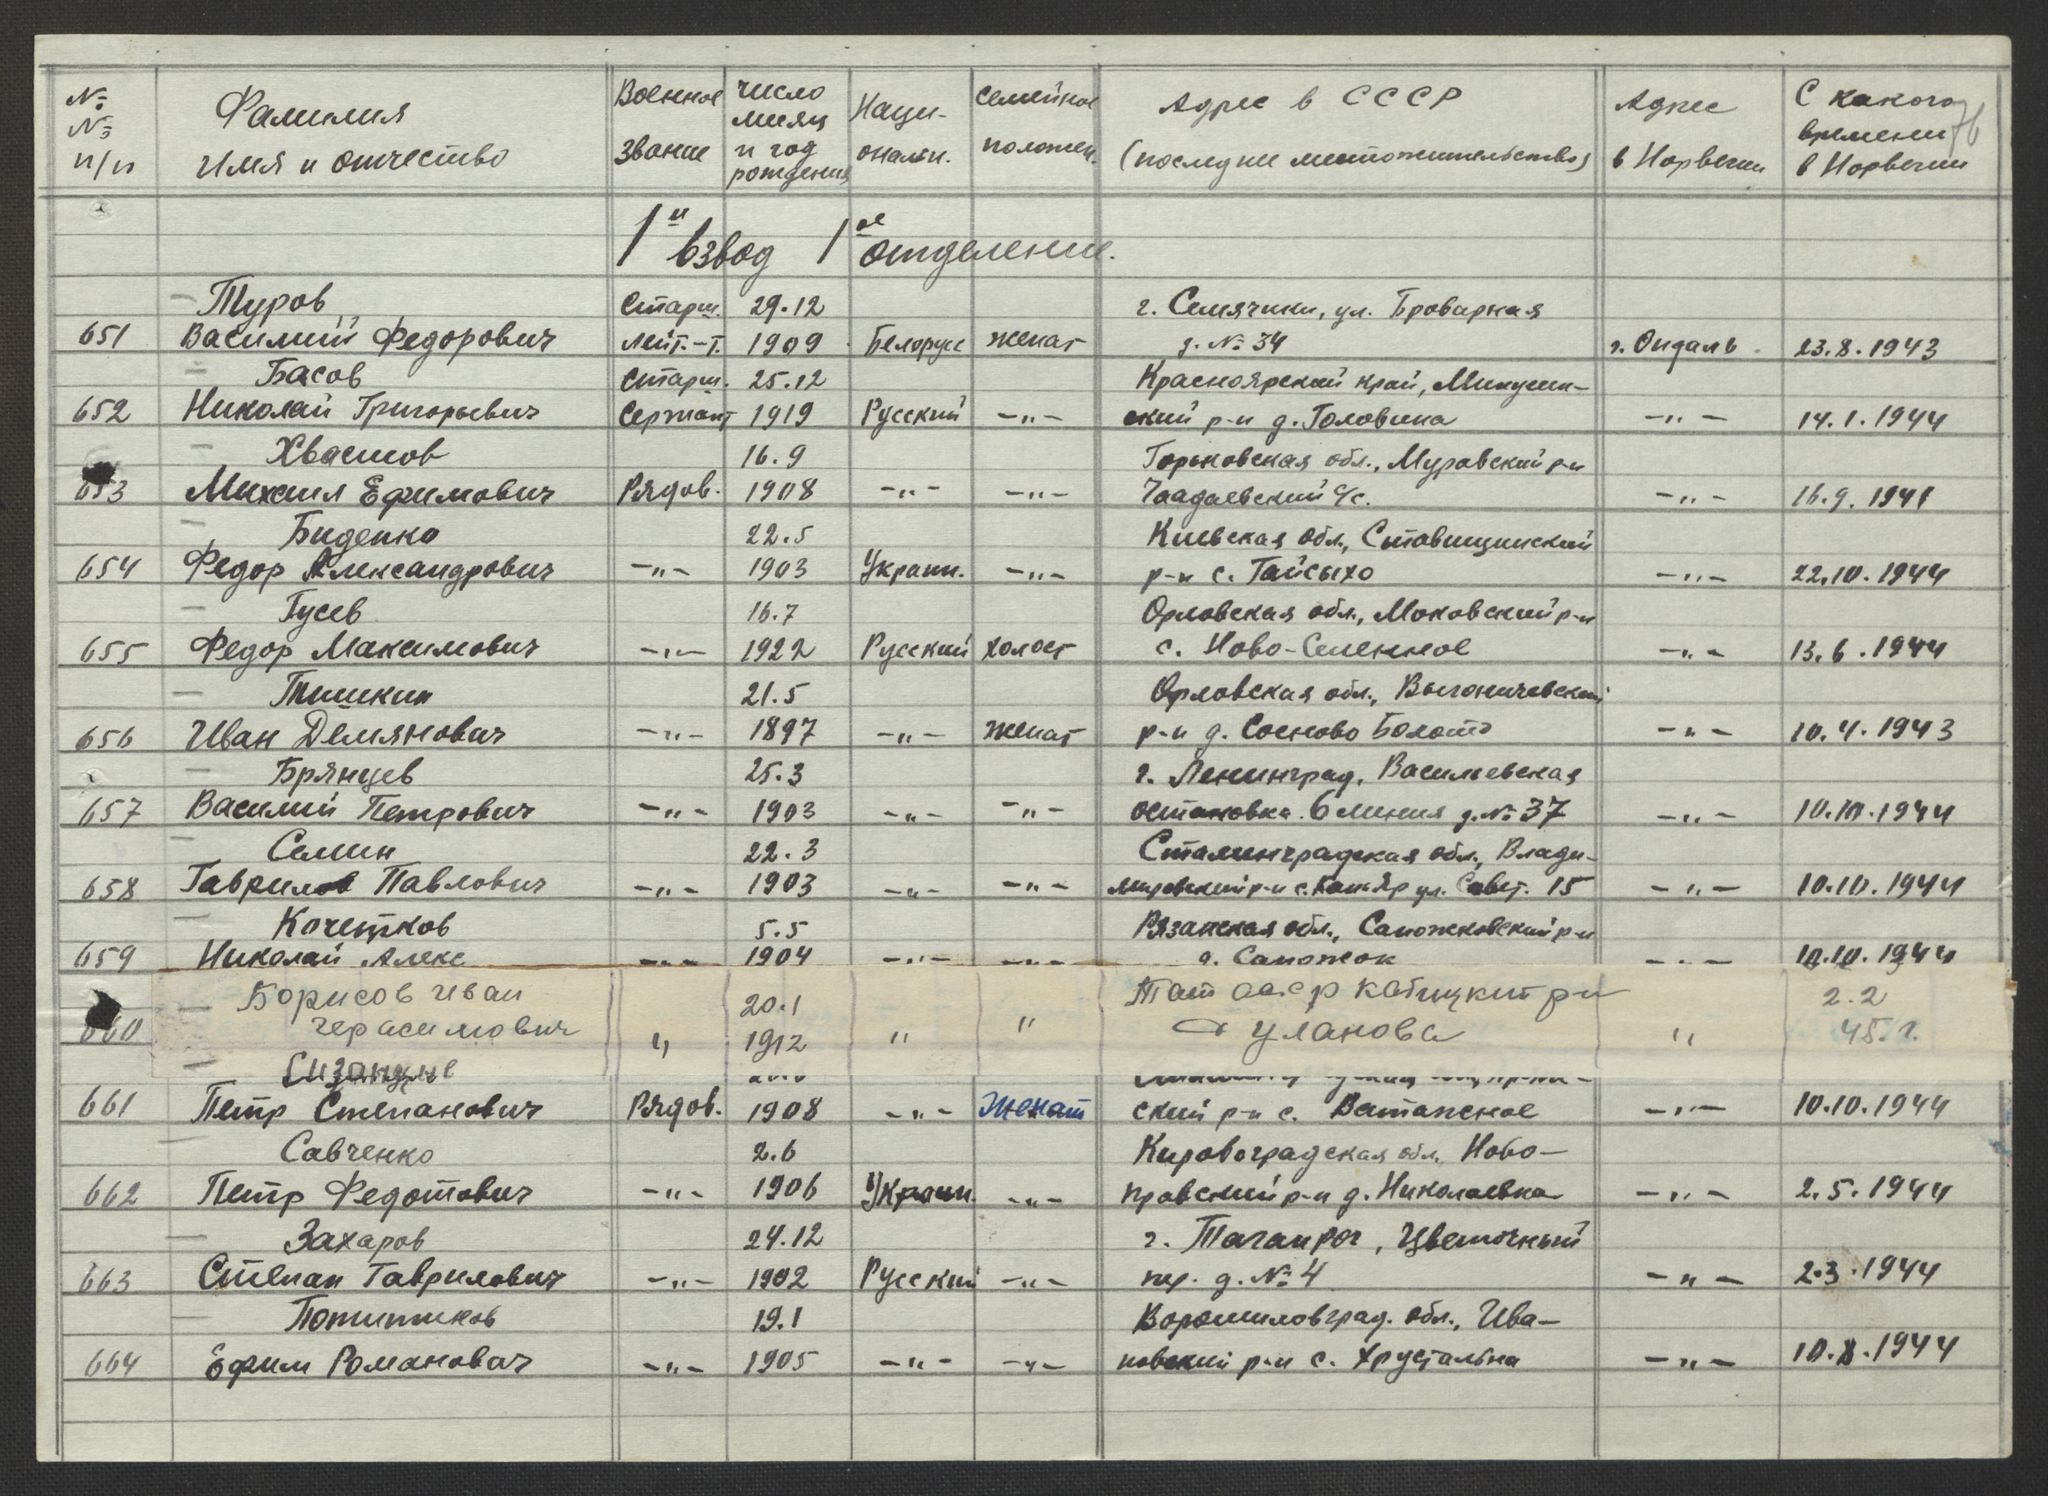 № № п/п | Фамилия Имя и отчество | Военное звание | число месяц и год рождения | Наци-ональн. | Семейное положен. | Адрес в СССР (последнее местожительство) | Адрес в Норвегии | С какого времени в Норвегии
76
1й взвод 1ое отделение.
Туров | Старш. | 29.12 | г. Семятичи, ул. Броварная
651 | Василий Федорович | лейт.-т. | 1909 | Белорусс | женат | д. № 34 | г. Опдаль | 23.8.1943
Басов | Старш. | 25.12 | Красноярский край, Минусин-
652 | Николай Григорьевич | Сержант | 1919 | Русский | -"- | ский р-н д. Головина | -"- | 14.1.1944
Хвастов | 16.9 | Горьковская обл., Муравский р-н
653 | Михаил Ефимович | Рядов. | 1908 | -"- | -"- | Чаадаевский с/с. | -"- | 16.9.1941
Биденко | 22.5 | Киевская обл., Ставищинский
654 | Федор Александрович | -"- | 1903 | Украин. | -"- | р-н с. Гайсыхо | -"- | 22.10.1944
Гусев | 16.7 | Орловская обл., Моховский р-н
655 | Федор Максимович | -"- | 1922 | Русский | холост | с. Ново-Селенное | -"- | 13.6.1944
Тишкин | 21.5 | Орловская обл., Выгоничевский
656 | Иван Демянович | -"- | 1897 | -"- | женат | р-н д. Сосново Болото | -"- | 10.4.1943
Брянцев | 25.3 | г. Ленинград, Васильевская
657 | Василий Петрович | -"- | 1903 | -"- | -"- | остановка. 6 линия д. № 37 | -"- | 10.10.1944
Семин | 22.3 | Сталинградская обл., Влади-
658 | Гаврилов Павлович | -"- | 1903 | -"- | -"- | мировский р-н с. Кап-Яр ул. Совет. 15 | -"- | 10.10.1944
Кочетков | 5.5 | Рязанская обл., Сапожковский р-н
659 | Николай Алекс | -"- | 1904 | -"- | -"- | д. Сапожок | -"- | 10.10.1944
Борисов иван | 20.1 | Тат асср р-н | 2.2
660 | герасимович | " | 1912 | " | " | д уланова | " | 45.г.
661 | Петр Степанович | Рядов. | 1908 | -"- | Женат | ский р-н с. Ватажное | -"- | 10.10.1944
Савченко | 2.6 | Кировоградская обл. Ново-
662 | Петр Федотович | -"- | 1906 | Украин. | -"- | правский р-н д. Николаевка | -"- | 2.5.1944
Захаров | 24.12 | г. Таганрог, Цветочный
663 | Степан Гаврилович | -"- | 1902 | Русский | -"- | пер. д. № 4 | -"- | 2.3.1944
Потитиков | 19.1 | Ворошиловград. обл., Ива-
664 | Ефим Романович | -"- | 1905 | -"- | -"- | новский р-н с. Хрустальна | -"- | 10.8.1944